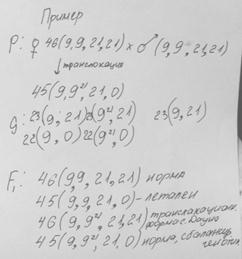 Пример
P: ♀ 46(9,9,21,21) × ♂ (9,9,21,21)
↓ транслокация
45(9,9²¹,21,0)
g: 23(9,21) (9²¹,21) 23(9,21)
22(9,0) 22(9²¹,0)
F₁: 46(9,9,21,21) норма
45(9,9,21,0) - летален
46(9,9²¹,21,21) транслокацион. форма с. Дауна
45(9,9²¹,21,0) норма, сбаланс.